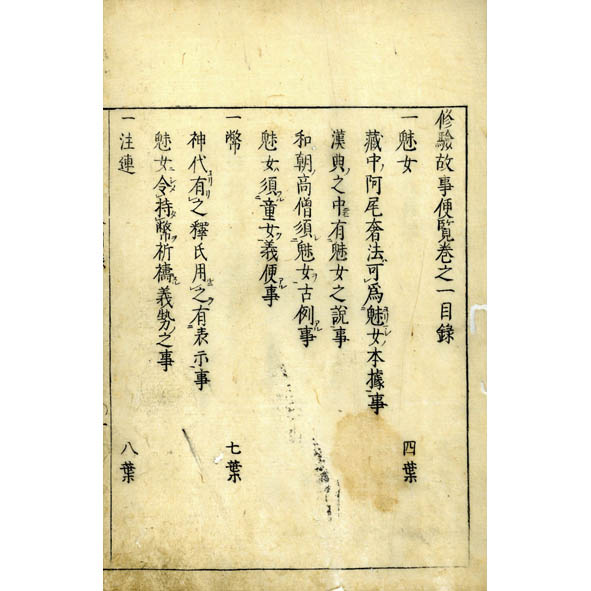 修驗故事便覽卷之一目錄
一魅女 四葉
藏中阿尾奢法可爲魅女本據事
漢典之中有魅女之說事
和朝高僧須魅女古例事
魅女須童女義便事
一幣 七葉
神代有之釋氏用之有表示事
魅女令持幣祈禱義勢之事
一注連 八葉